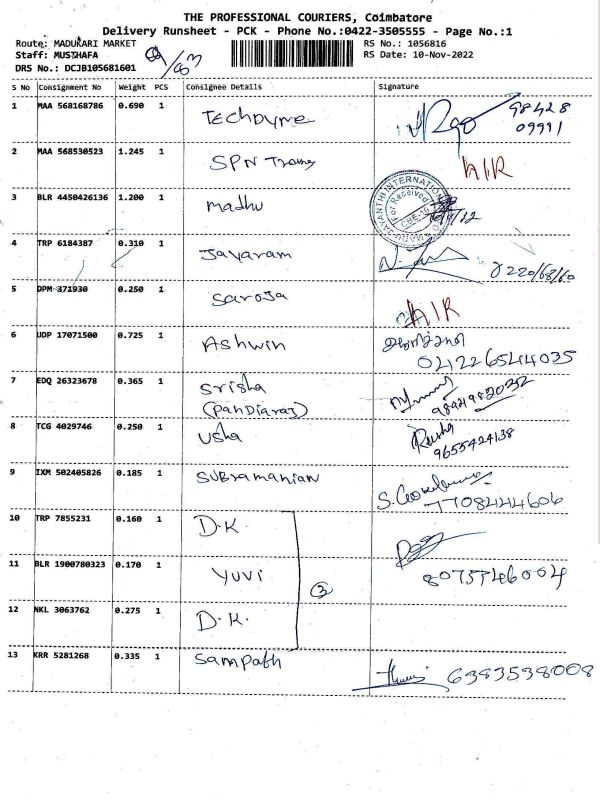 THE PROFESSIONAL COURIERS, Coimbatore
Delivery Runsheet - PCK - Phone No.:0422-3505555 - Page No.:1
Route: MADUKARI MARKET RS No.: 1056816
Staff: MUSTHAFA RS Date: 10-Nov-2022
DRS No.: DCJB105681601
S No Consignment No Weight PCS Consignee Details Signature
1 MAA 568168786 0.690 1 Techdyne 98428
09991
2 MAA 568530523 1.245 1 SPN AIR
3 BLR 4450426136 1.200 1 madhu JAYANTHI INTERNATIONAL For Received
4 TRP 6184387 0.310 1 Jayaram 8220/68/60
5 DPM 371930 0.250 1 Saroja AIR
6 UDP 17071500 0.725 1 Ashwin
04226544035
7 EDQ 26323678 0.365 1 Srisha
(Pandiaraj)
8 TCG 4029746 0.250 1 Usha
9655424138
9 IXM 502405826 0.185 1 Subramanian
7708444606
10 TRP 7855231 0.160 1 D.K
11 BLR 1900780323 0.170 1 Yuvi 3 8075546004
12 NKL 3063762 0.275 1 D.K.
13 KRR 5281268 0.335 1 Sampath 6383538008